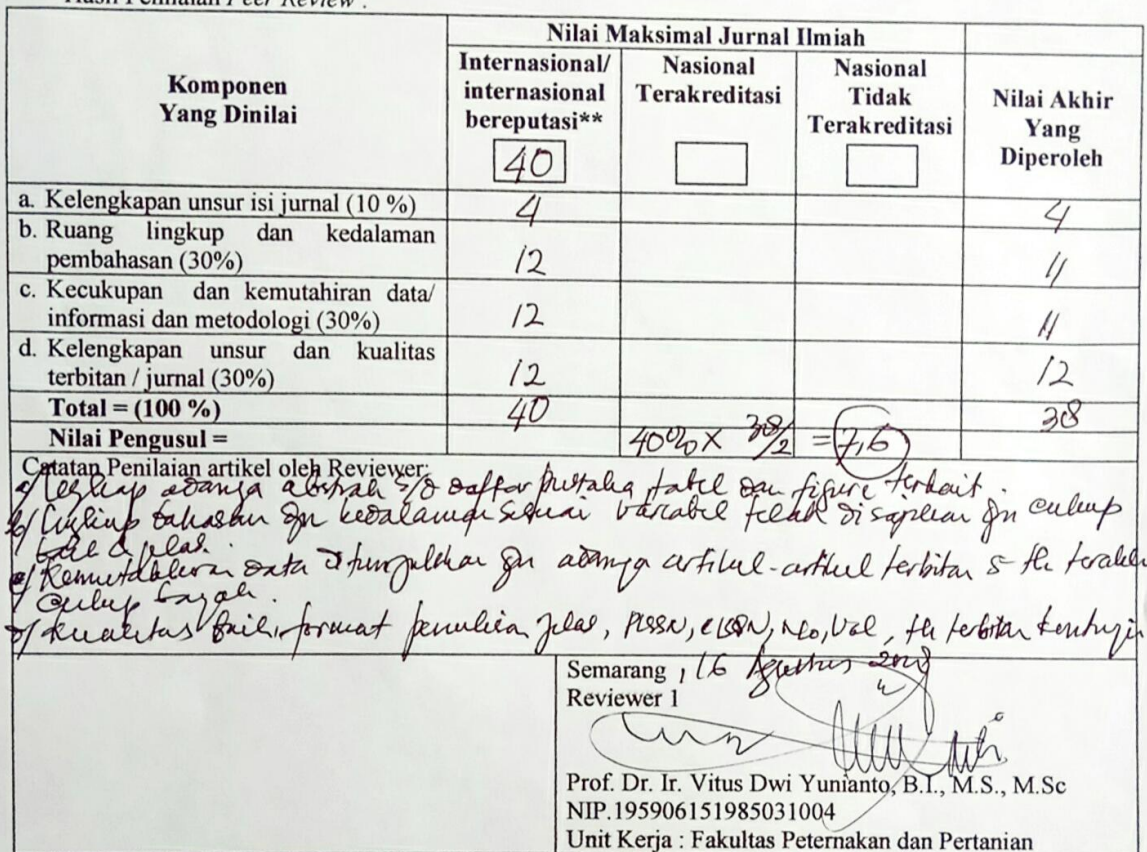 Hasil Penilaian Peer Review :
Nilai Maksimal Jurnal Ilmiah
Komponen
Yang Dinilai
Internasional/
internasional
bereputasi**
40
Nasional
Terakreditasi
Nasional
Tidak
Terakreditasi
Nilai Akhir
Yang
Diperoleh
a. Kelengkapan unsur isi jurnal (10 %) 4 4
b. Ruang lingkup dan kedalaman
pembahasan (30%) 12 11
c. Kecukupan dan kemutahiran data/
informasi dan metodologi (30%) 12 11
d. Kelengkapan unsur dan kualitas
terbitan / jurnal (30%) 12 12
Total = (100 %) 40 38
Nilai Pengusul = 40% x 38/2 = 7,6
Catatan Penilaian artikel oleh Reviewer:
a/ lengkap adanya abstrak s/d daftar pustaka tabel dan figure terkait.
b/ bahasan gn kedalaman sesuai variabel telah disajikan gn cukup
jelas.
data ditunjukkan gn adanya artikel-artikel terbitan 5 th
cukup
d/ kualitas baik, format penulisan jelas, PISSN, eISSN, No, Vol, th terbitan
Semarang, 16 Agustus 2018
Reviewer 1
Prof. Dr. Ir. Vitus Dwi Yunianto, B.I., M.S., M.Sc
NIP.195906151985031004
Unit Kerja : Fakultas Peternakan dan Pertanian